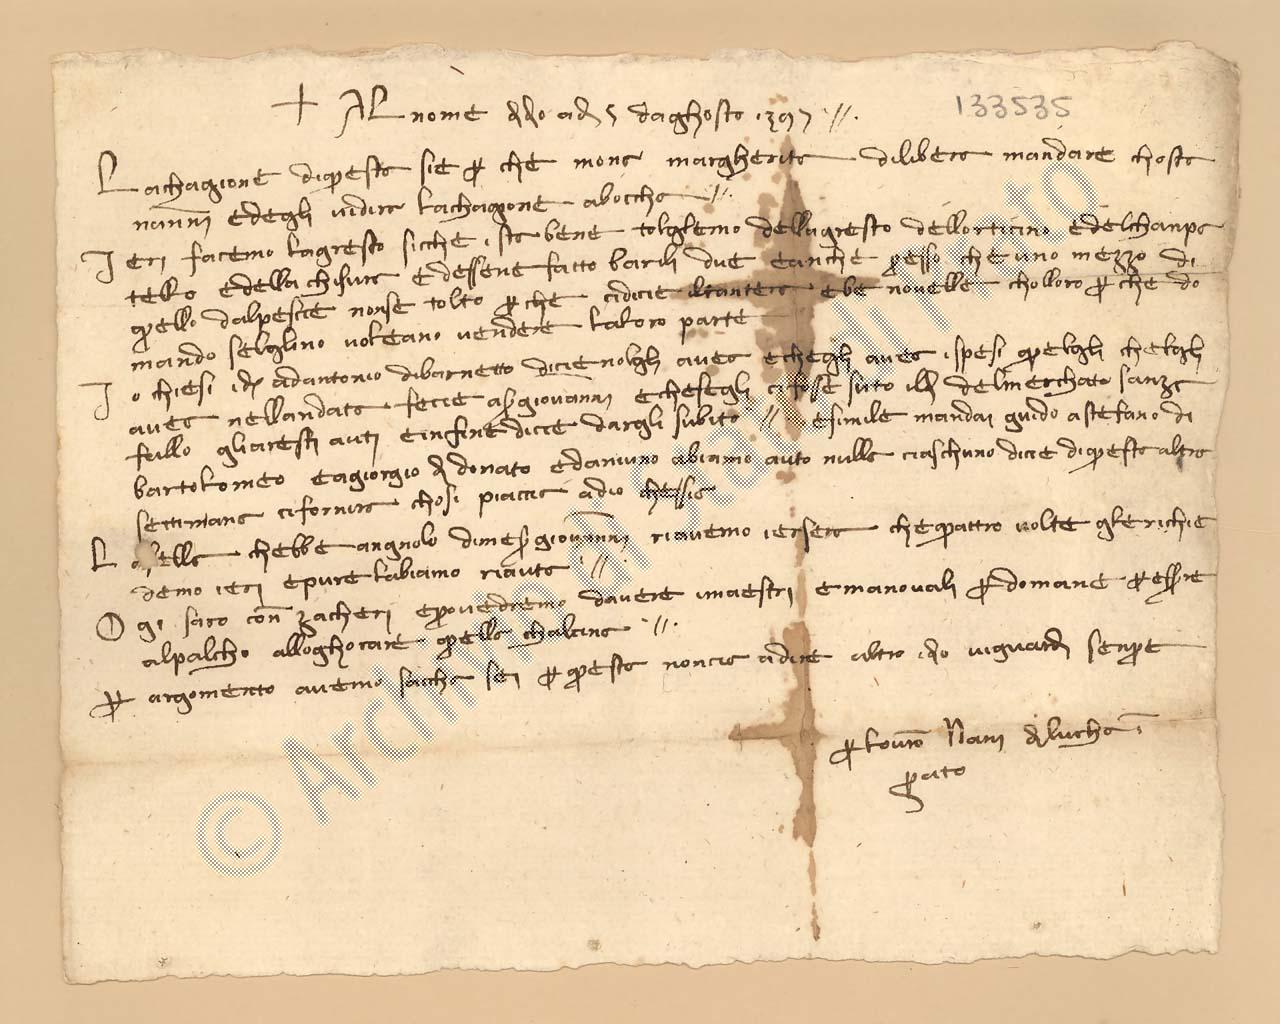 + Al nome di dio a dì 5 daghosto 1397 //. 133535
La chagione di questa sie per che mona margherita dilibera mandare chostà
nanni e degli vidirà la chagione a boccha //.
Ieri facemo lagresto sicche ista bene tolglemo dellagresto dellorticino e del chanpi
tello e della chiusura e dessene fatto barili due e anche presso che uno mezzo di
quello dal pescie non se tolto per che ci dicie e be novelle cholloro per che do
mando selglino voleano vendere la loro parte
Io chiesi i dr ad antonio di barnetto dicie nolgli avea e chegli avea ispesi quelgli chelgli
avea nellandata fecie a ser giovanni e chesegli ci fosse suto il dì del merchato sanza
fallo gli aresti auti e infine dicie dargli subito // e simile mandai guido a stefano di
bartolomeo e a giorgio di donato e da niuno abiamo auto nulla ciaschuno dicie di questa altra
settimana ci fornirà chosi piaccia a dio che ssia
La sella chebbe angnolo di mes giovanni riavemo iersera che quattro volte gle richie
demo ieri e pure labiamo riauta //
Ogi saro con zacheri e provedremo davere i maestri e manovali per domane per essere
al palcho alloghorare quella chalcina //.
per argomento avemo sacha sei per questa non cia a dire altro idio vi guardi senpre
per barzalone Nanni di lucha i
prato
© Archivio di Stato di Prato